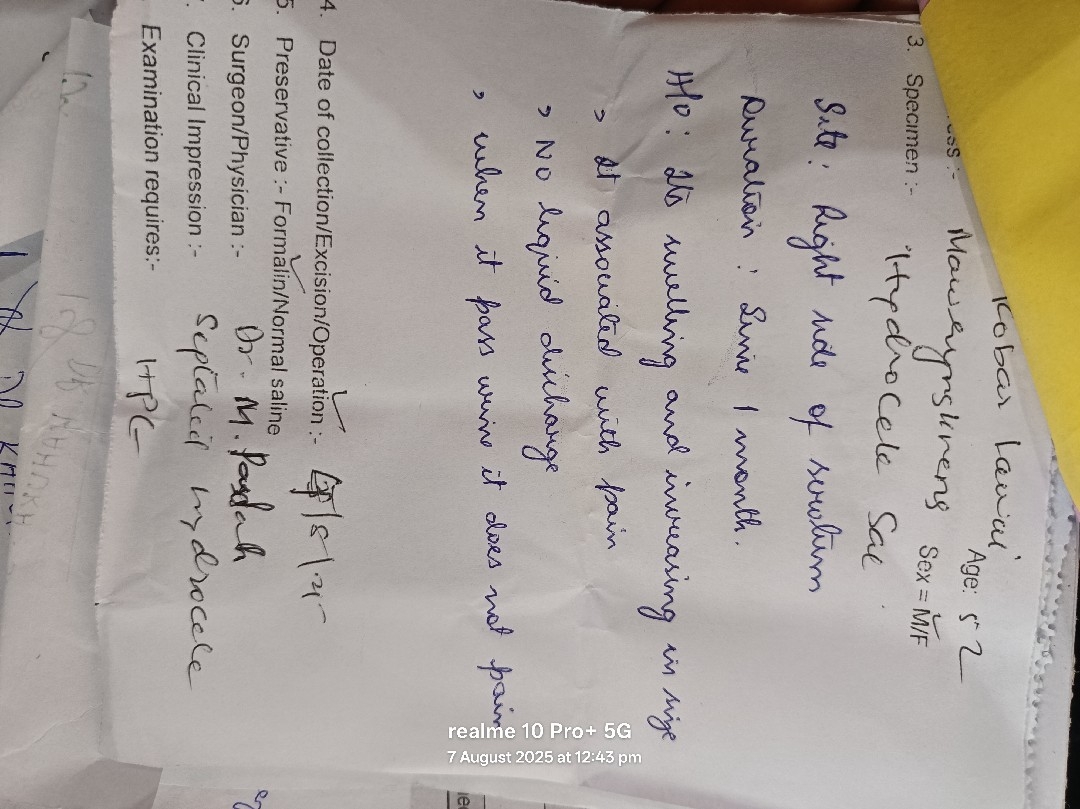 Kobar Lawai Age: 52
ess :- Mawrynskneng Sex = M/F
3. Specimen :- Hydrocele Sac
Site: Right side of scrotum
Duration : Since 1 month.
H/o : Its swelling and increasing in size
> It associated with pain
> No liquid discharge
> when it pass urine it does not pain
4. Date of collection/Excision/Operation :- /8/25
5. Preservative :- Formalin/Normal saline
6. Surgeon/Physician :- Dr. M. Pasdah
Clinical Impression :- Septated hydrocele
Examination requires:- HPE
realme 10 Pro+ 5G
7 August 2025 at 12:43 pm